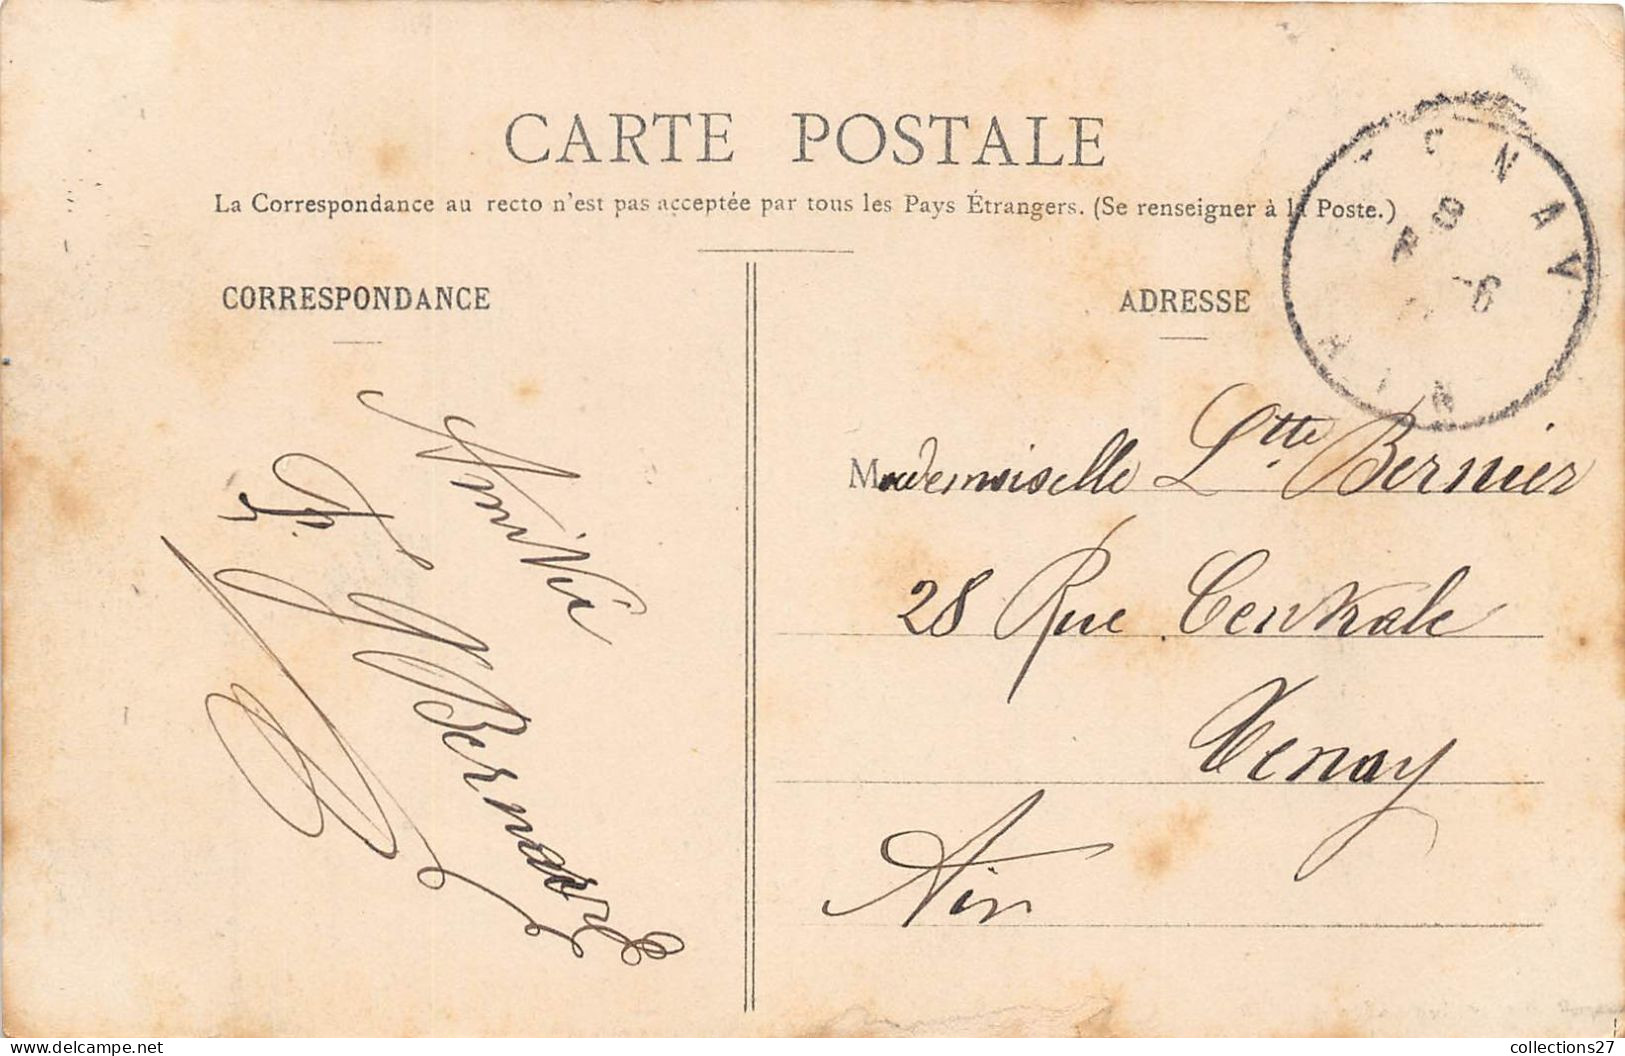 CARTE POSTALE
La Correspondance au recto n'est pas acceptée par tous les Pays Étrangers. (Se renseigner à la Poste.)
CORRESPONDANCE
Amitié
Bernard
ADRESSE
Mademoiselle Ltte Bernier
28 Rue Centrale
Tenay
Ain
TENAY
AIN
8
-6
collections27